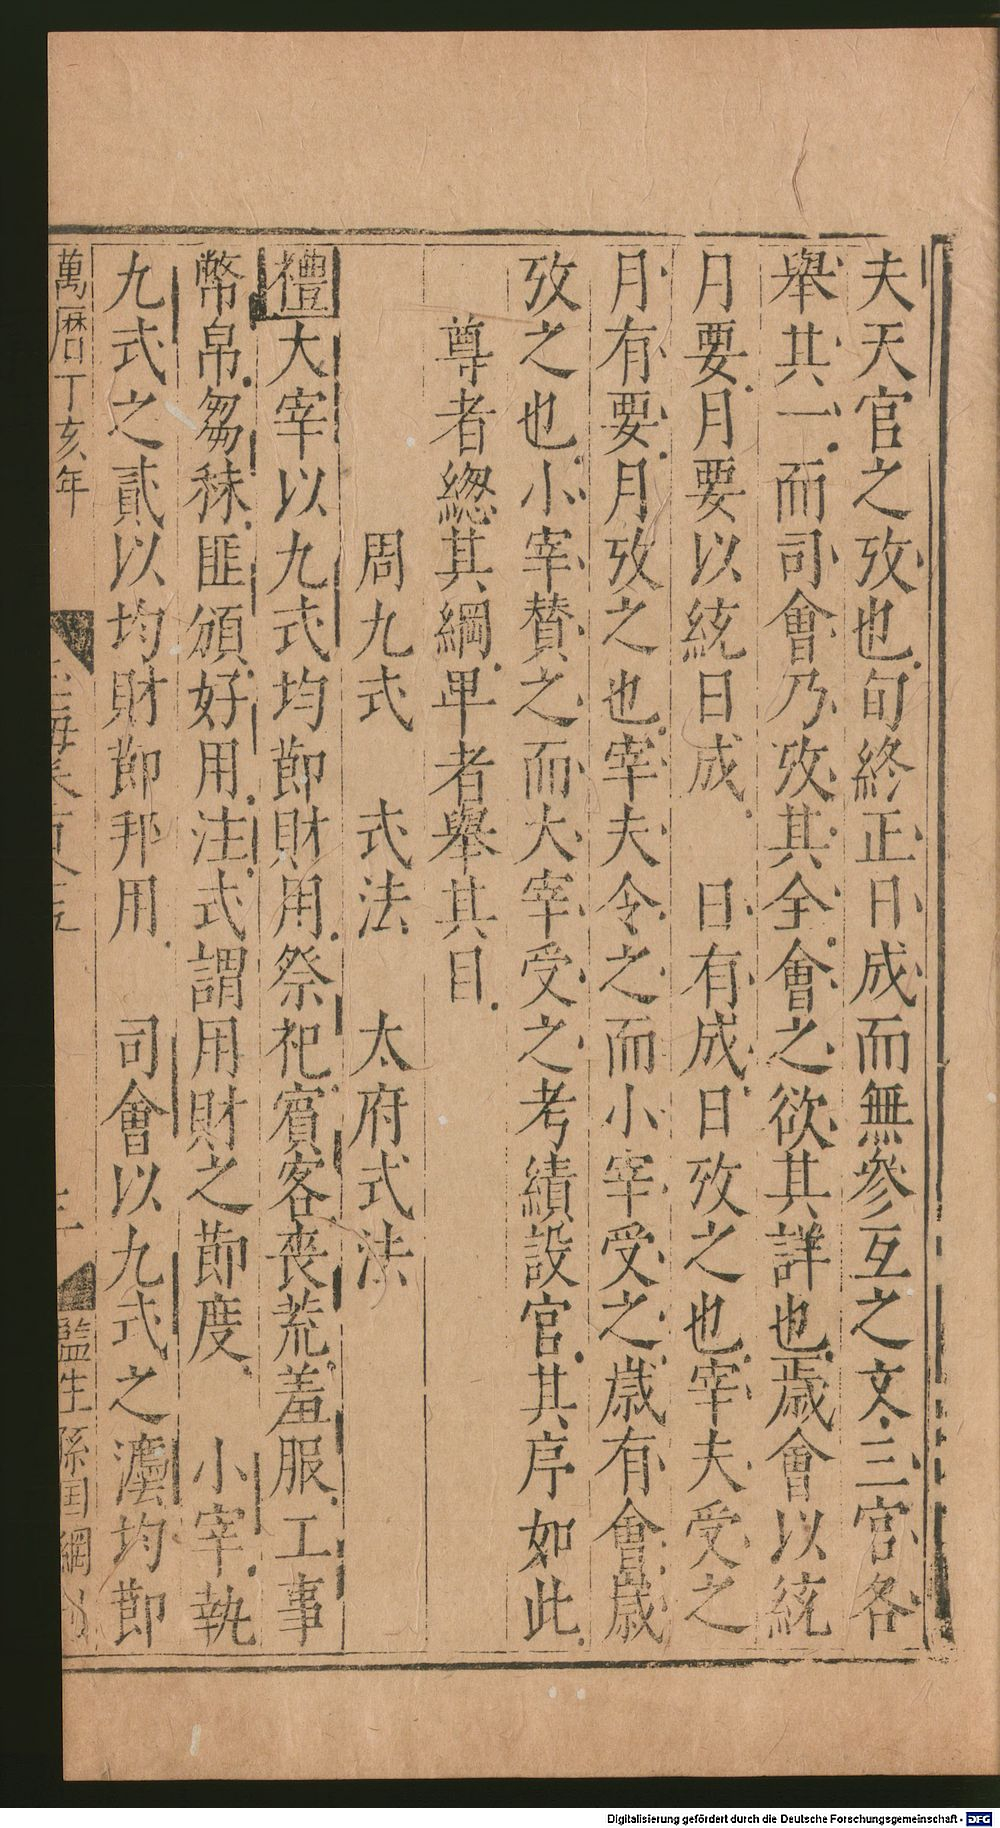 夫天官之攷也旬終正日成而無參互之文三官各
舉其一而司會乃攷其全會之欲其詳也歲會以統
月要月要以統日成　日有成日攷之也宰夫受之
月有要月攷之也宰夫令之而小宰受之歲有會歲
攷之也小宰贊之而大宰受之考績設官其序如此
尊者緫其綱卑者舉其目
周九式　式法　太府式法
禮大宰以九式均節財用祭祀賓客喪荒羞服工事
幣帛芻秣匪頒好用注式謂用財之節度　小宰執
九式之貳以均財節邦用　司會以九式之灋均節
萬曆丁亥年
監生孫国綱
Digitalisierung gefördert durch die Deutsche Forschungsgemeinschaft - DFG